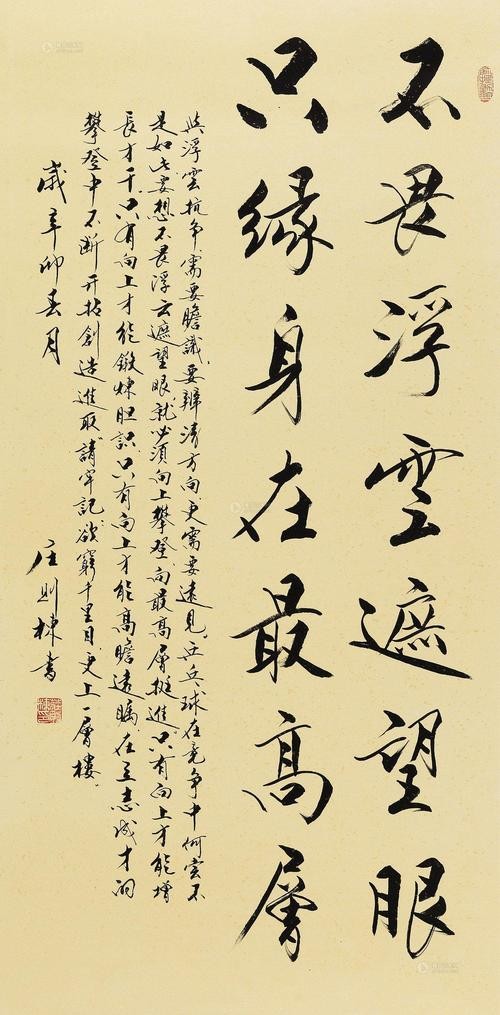 不畏浮雲遮望眼
只緣身在最高層
與浮雲抗争需要膽識要辨清方向更需要遠見乒乓球在竞争中何尝不
是如此要想不畏浮云遮望眼就必須向上攀登向最高層挺進只有向上才能增
長才干只有向上才能鍛煉胆识只有向上才能高瞻遠瞩在立志成才的
攀登中不断开拓創造進取請牢記欲窮千里目更上一層楼
歲辛卯春月
庄则棟書